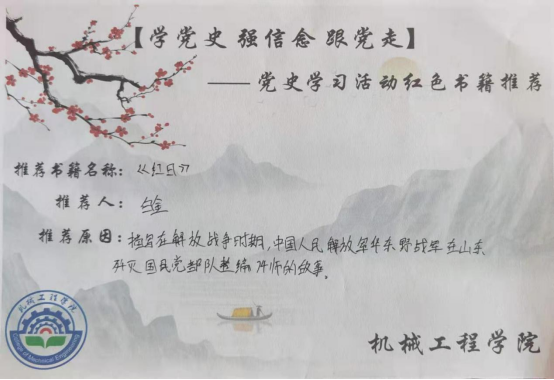 【学党史 强信念 跟党走】
——党史学习活动红色书籍推荐
推荐书籍名称：《红日》
推荐人：
推荐原因：描写在解放战争时期，中国人民解放军华东野战军在山东
歼灭国民党部队整编74师的故事。
机械工程学院
机械工程学院